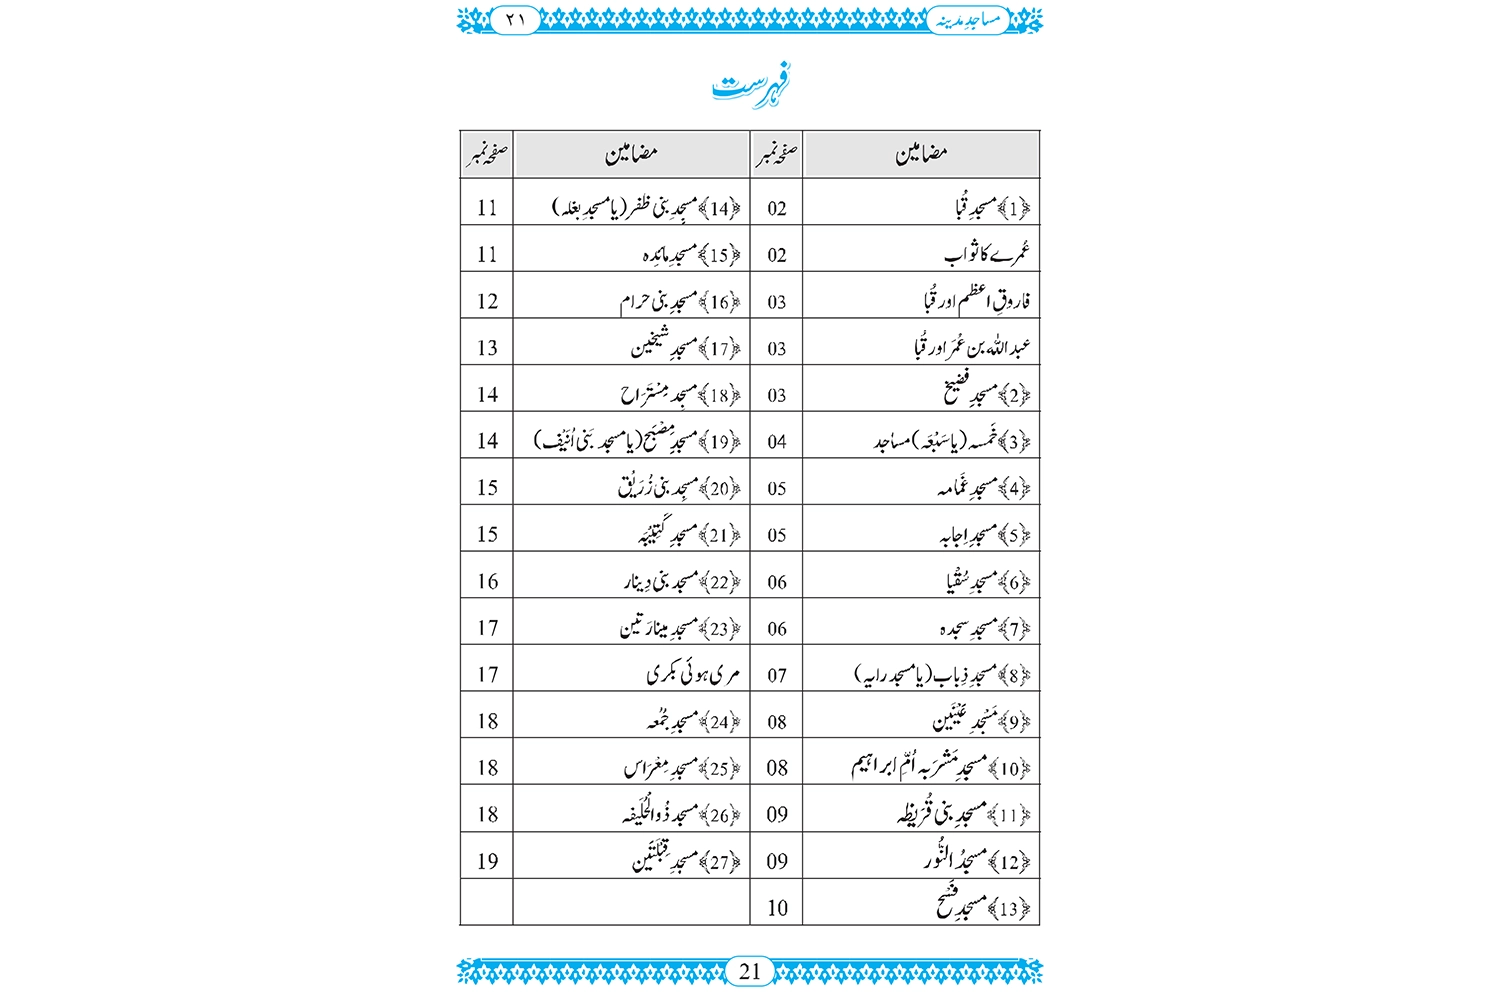 مساجدِ مدینہ ۲۱
فہرست
مضامین صفحہ نمبر مضامین صفحہ نمبر
﴿1﴾ مسجدِ قُبا 02 ﴿14﴾ مسجدِ بنی ظَفَر (یا مسجدِ بغلہ) 11
عُمرے کا ثواب 02 ﴿15﴾ مسجدِ مائدہ 11
فاروقِ اعظم اور قُبا 03 ﴿16﴾ مسجدِ بنی حرام 12
عبد اللہ بن عُمَر اور قُبا 03 ﴿17﴾ مسجدِ شیخین 13
﴿2﴾ مسجدِ فَضِیخ 03 ﴿18﴾ مسجدِ مِسْتَرَاح 14
﴿3﴾ خَمسہ (یا سَبْعَہ) مساجد 04 ﴿19﴾ مسجدِ مِصْبَح (یا مسجد بَنی اُنَیْف) 14
﴿4﴾ مسجدِ غَمَامہ 05 ﴿20﴾ مسجدِ بنی زُرَیْق 15
﴿5﴾ مسجدِ اِجابہ 05 ﴿21﴾ مسجدِ کَتِیْبَہ 15
﴿6﴾ مسجدِ سُقْیا 06 ﴿22﴾ مسجد بنی دِینار 16
﴿7﴾ مسجدِ سجدہ 06 ﴿23﴾ مسجدِ مینارَتین 17
﴿8﴾ مسجدِ ذِباب (یا مسجد رایہ) 07 مری ہوئی بکری 17
﴿9﴾ مَسْجِدِ عَیْنَین 08 ﴿24﴾ مسجدِ جُمُعہ 18
﴿10﴾ مسجدِ مَشْرَبہ اُمِّ اِبراہیم 08 ﴿25﴾ مسجدِ مِعْرَاس 18
﴿11﴾ مسجدِ بنی قُرَیظہ 09 ﴿26﴾ مسجد ذُوالْحُلَیفہ 18
﴿12﴾ مسجدُ النُّور 09 ﴿27﴾ مسجدِ قِبْلَتَین 19
﴿13﴾ مسجدِ فَسْح 10
21